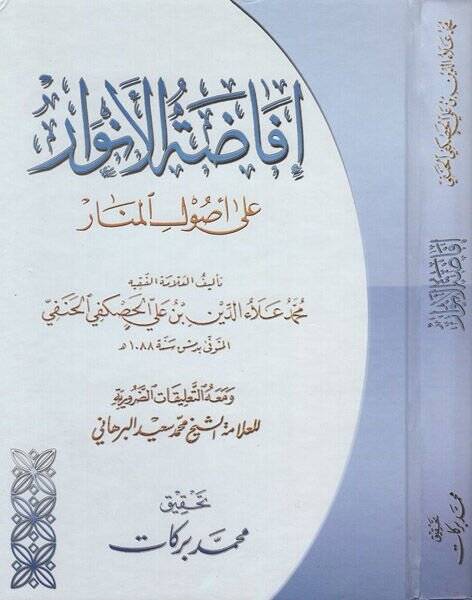 إفاضة الأنوار
على أصول المنار
تأليف العلامة الفقيه
محمد علاء الدين بن علي الحصكفي الحنفي
المتوفى بدمشق سنة ١٠٨٨ هـ
ومعه التعليقات الضرورية
للعلامة الشيخ محمد سعيد البرهاني
تحقيق
محمد بركات
محمد علاء الدين بن علي الحصكفي الحنفي
إفاضة الأنوار
تحقيق
محمد بركات